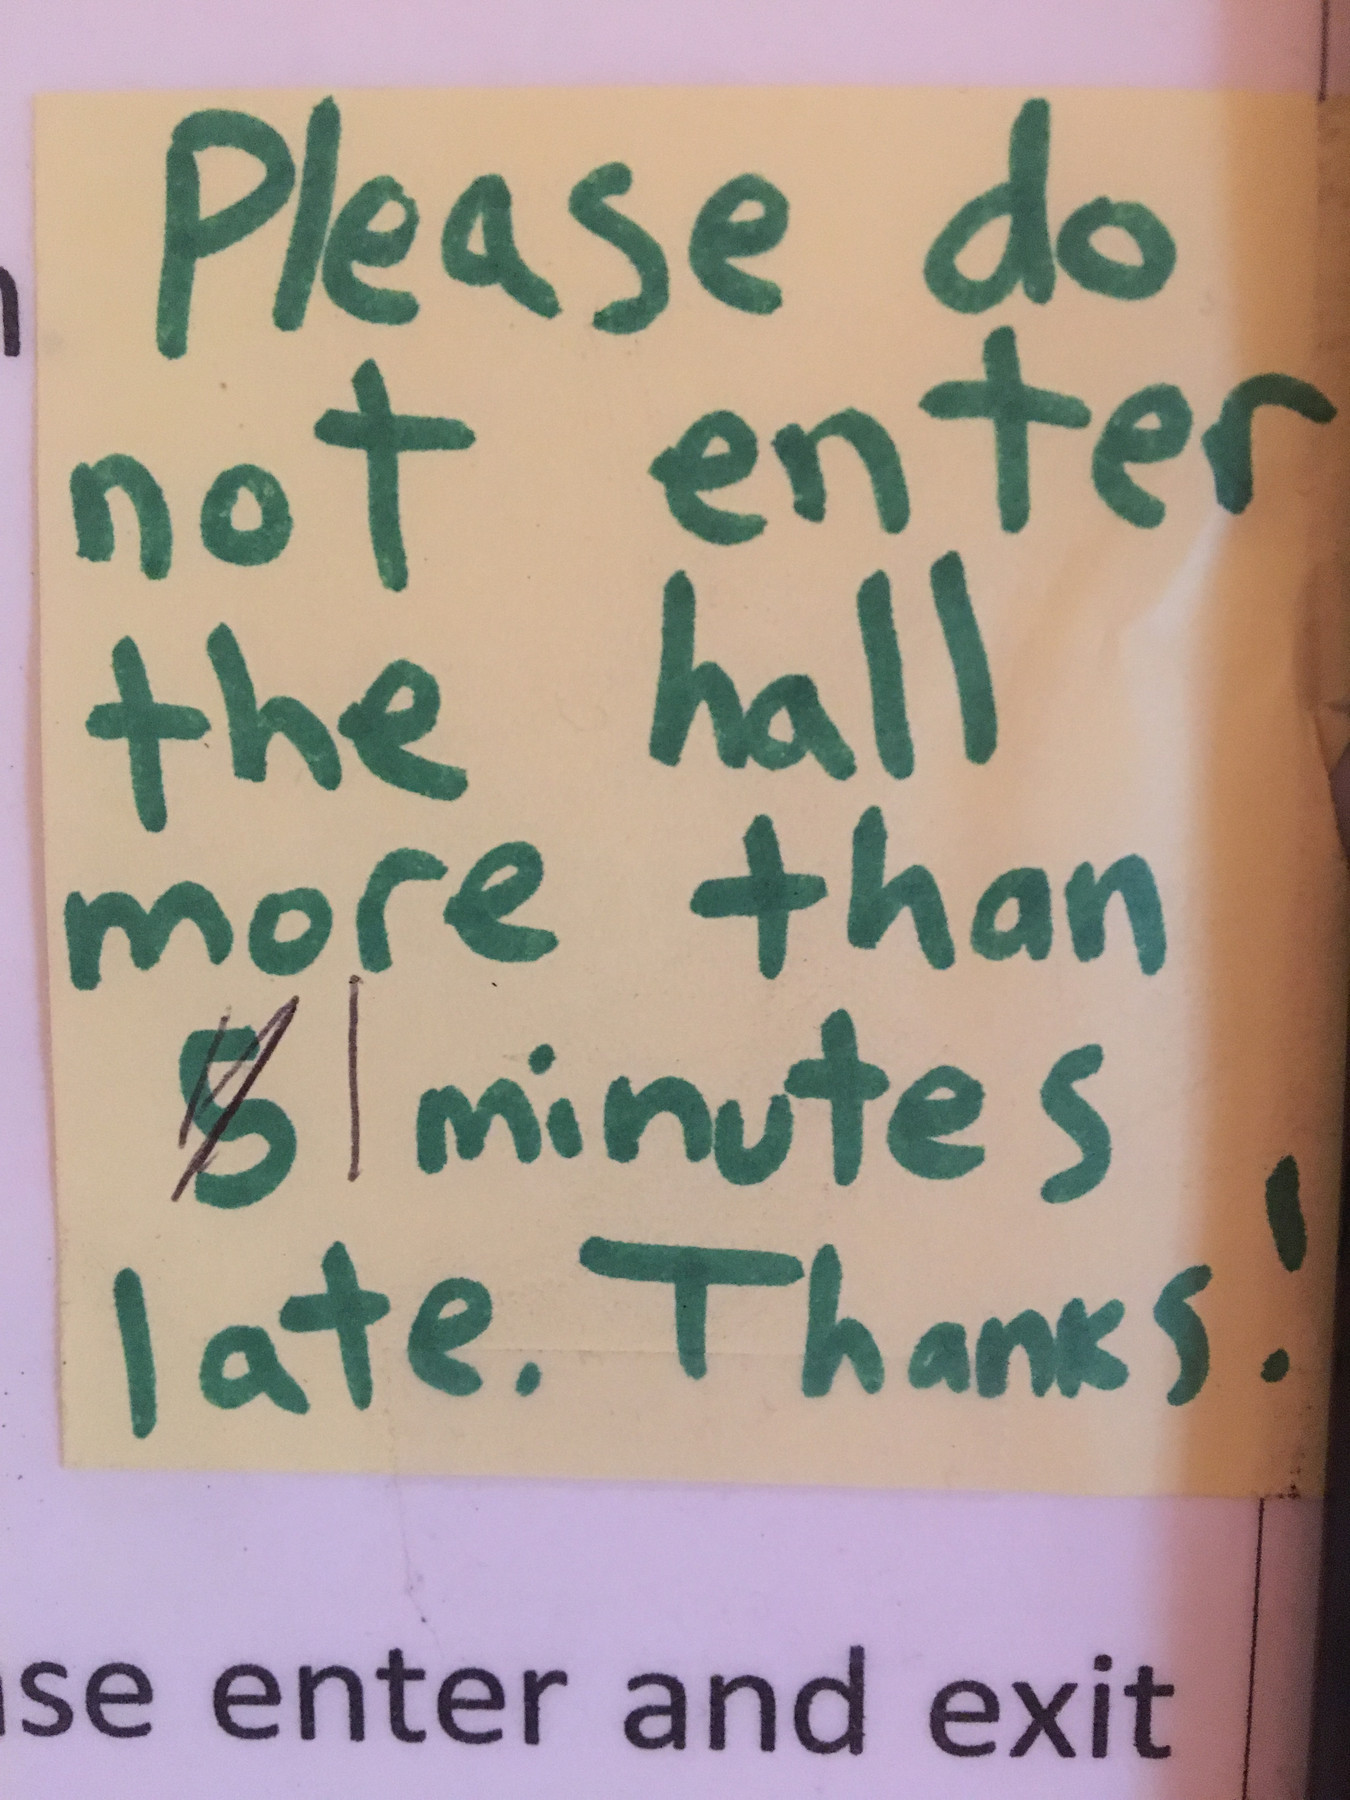 Please do
not enter
the hall
more than
5 1 minutes
late. Thanks!
enter and exit